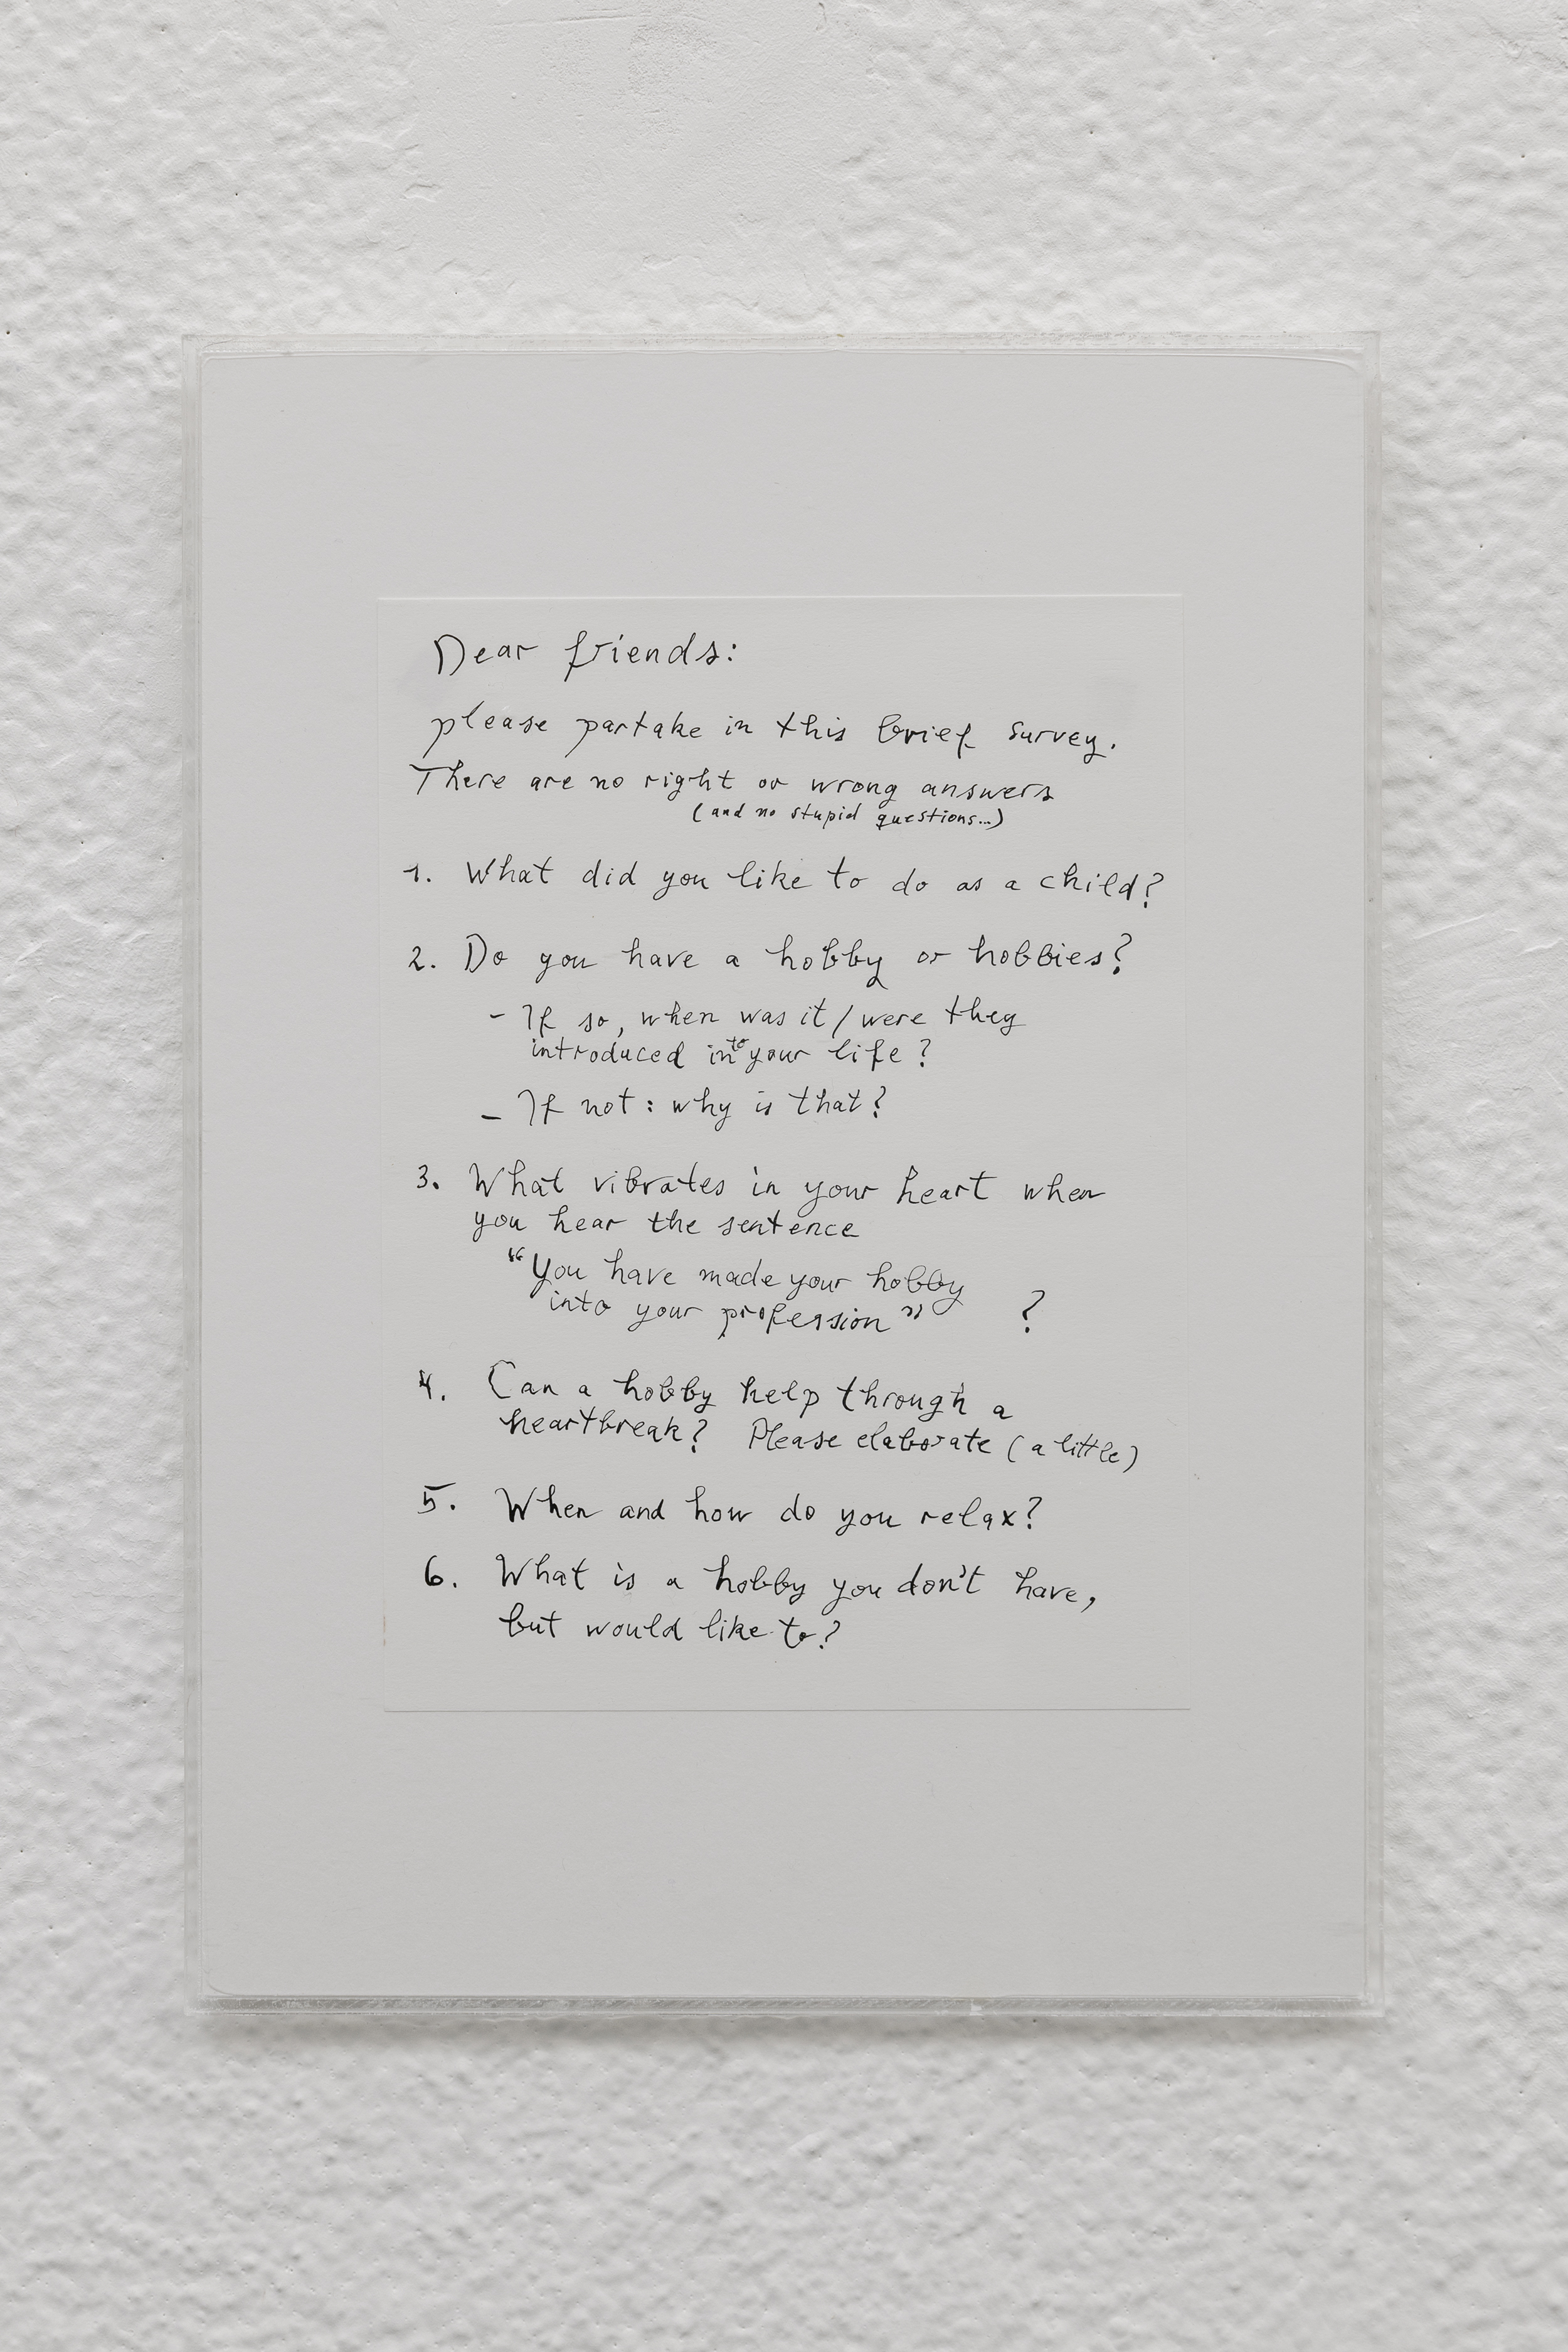 Dear friends:
please partake in this brief survey.
There are no right or wrong answers
(and no stupid questions...)
1. What did you like to do as a child?
2. Do you have a hobby or hobbies?
- If so, when was it / were they
introduced into your life?
- If not: why is that?
3. What vibrates in your heart when
you hear the sentence
"You have made your hobby
into your profession" ?
4. Can a hobby help through a
heartbreak? Please elaborate (a little)
5. When and how do you relax?
6. What is a hobby you don't have,
but would like to?